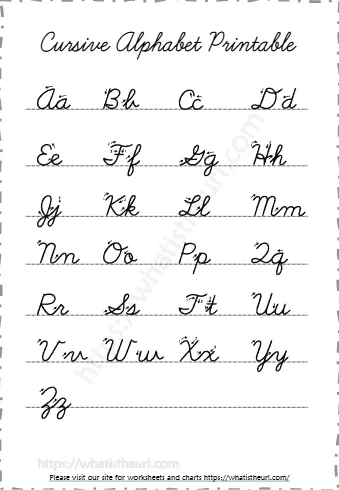 Cursive Alphabet Printable
Aa Bb Cc Dd
Ee Ff Gg Hh
Jj Kk Ll Mm
Nn Oo Pp Qq
Rr Ss Tt Uu
Vv Ww Xx Yy
Zz
https://whatistheurl.com
https://whatistheurl.com
Please visit our site for worksheets and charts https://whatistheurl.com/